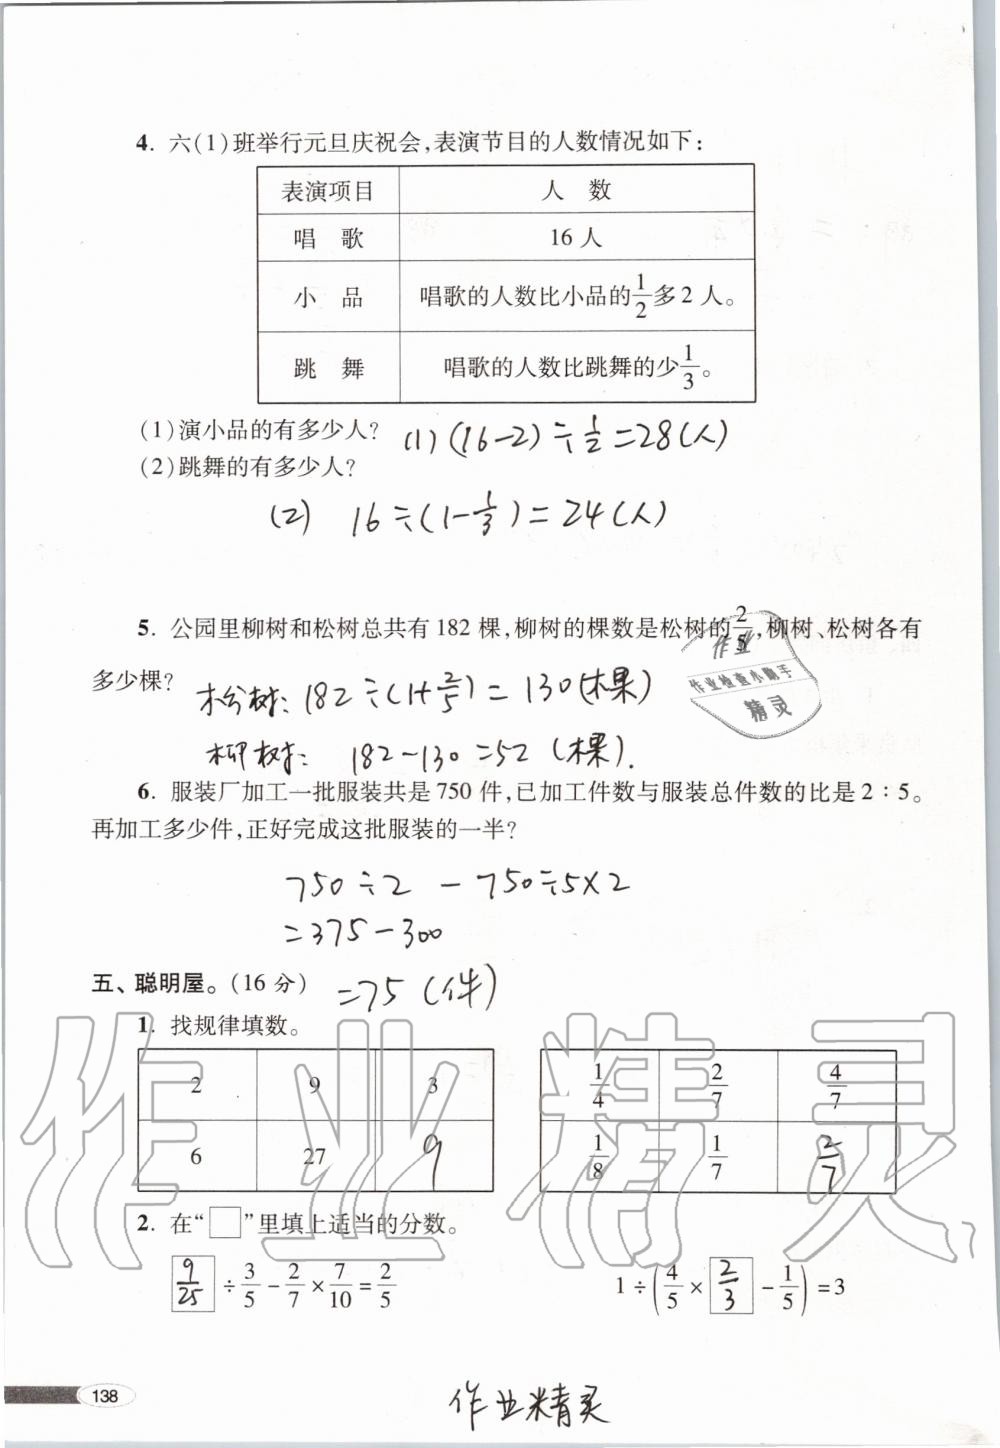 4. 六(1)班举行元旦庆祝会,表演节目的人数情况如下:
表演项目 人 数
唱 歌 16 人
小 品 唱歌的人数比小品的1/2多 2 人。
跳 舞 唱歌的人数比跳舞的少1/3。
(1)演小品的有多少人? (1) (16-2)÷1/2=28(人)
(2)跳舞的有多少人?
(2) 16÷(1-1/3)=24(人)
5. 公园里柳树和松树总共有 182 棵,柳树的棵数是松树的2/5,柳树、松树各有
多少棵? 松树: 182÷(1+2/5)=130(棵)
柳树: 182-130=52(棵).
作业
作业检查小助手
精灵
6. 服装厂加工一批服装共是 750 件,已加工件数与服装总件数的比是 2∶5。
再加工多少件,正好完成这批服装的一半?
750÷2-750÷5×2
=375-300
=75(件)
五、聪明屋。(16 分)
1. 找规律填数。
2 9 3
6 27 9
1/4 2/7 4/7
1/8 1/7 2/7
2. 在“□”里填上适当的分数。
9/25÷3/5-2/7×7/10=2/5
1÷(4/5×2/3-1/5)=3
138
作业精灵
作业精灵